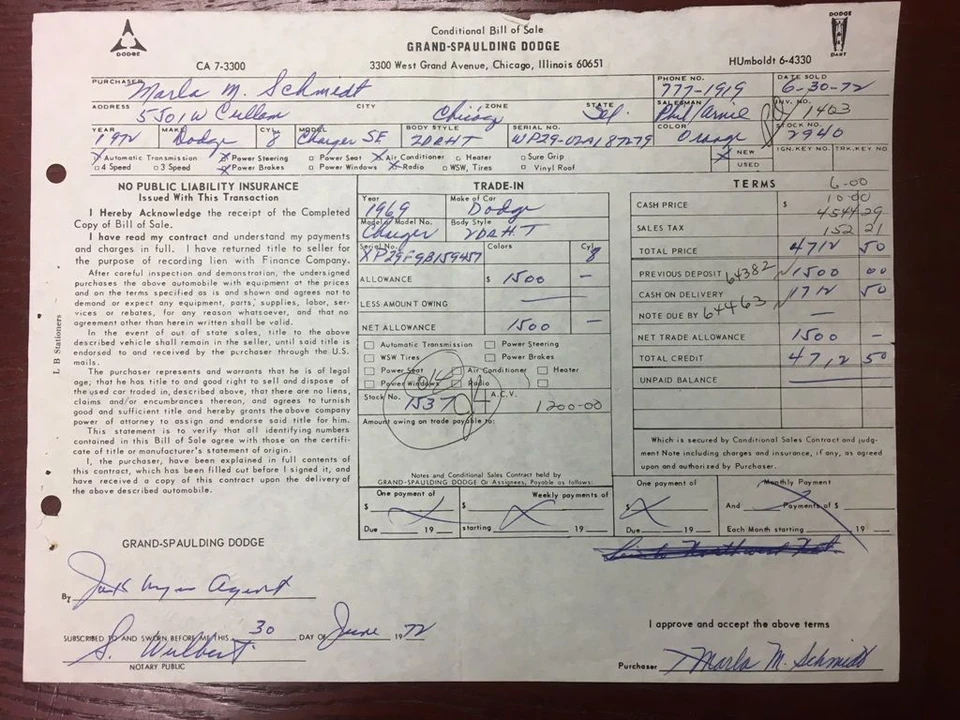 DODGE
Conditional Bill of Sale
DODGE
DART
GRAND-SPAULDING DODGE
CA 7-3300
3300 West Grand Avenue, Chicago, Illinois 60651
HUmboldt 6-4330
PURCHASER Marla M. Schmidt PHONE NO. 777-1919 DATE SOLD 6-30-72
ADDRESS 5501 W Cullom CITY Chicago ZONE STATE Ill. SALESMAN Phil/Arnie INV. NO. 1403
YEAR 1972 MAKE Dodge CYL. 8 MODEL Charger SE BODY STYLE 2DRHT SERIAL NO. WP29-U2A187279 COLOR Orange STOCK NO. 2940
X Automatic Transmission X Power Steering Power Seat X Air Conditioner Heater Sure Grip X NEW IGN. KEY NO. TRK. KEY NO.
4 Speed 3 Speed X Power Brakes Power Windows X Radio WSW, Tires Vinyl Roof USED
NO PUBLIC LIABILITY INSURANCE
Issued With This Transaction
I Hereby Acknowledge the receipt of the Completed
Copy of Bill of Sale.
I have read my contract and understand my payments
and charges in full. I have returned title to seller for
the purpose of recording lien with Finance Company.
After careful inspection and demonstration, the undersigned
purchases the above automobile with equipment at the prices
and on the terms specified as is and shown and agrees not to
demand or expect any equipment, parts, supplies, labor, ser-
vices or rebates, for any reason whatsoever, and that no
agreement other than herein written shall be valid.
In the event of out of state sales, title to the above
described vehicle shall remain in the seller, until said title is
endorsed to and received by the purchaser through the U.S.
mails.
The purchaser represents and warrants that he is of legal
age; that he has title to and good right to sell and dispose of
the used car traded in, described above, that there are no liens,
claims and/or encumbrances therean, and agrees to furnish
good and sufficient title and hereby grants the above company
power of attorney to assign and endorse said title for him.
This statement is to verify that all identifying numbers
contained in this Bill of Sale agree with those on the certifi-
cate of title or manufacturer's statement of origin.
I, the purchaser, have been explained in full contents of
this contract, which has been filled out before I signed it, and
have received a copy of this contract upon the delivery of
the above described automobile.
L B Stationers
TRADE-IN
Year 1969 Make of Car Dodge
Model or Model No. Charger Body Style 2DRHT
Serial No. XP29F9B159457 Colors Cyl. 8
ALLOWANCE $ 1500 —
LESS AMOUNT OWING —
NET ALLOWANCE 1500 —
Automatic Transmission Power Steering
WSW Tires Power Brakes
Power Seat Air Conditioner Heater
Power Windows Radio
Stock No. 1537 A.C.V. 1200-00
Amount owing on trade payable to:
TERMS
6-00
10-00
CASH PRICE $ 4544 29
SALES TAX 152 21
TOTAL PRICE 4712 50
PREVIOUS DEPOSIT 64382 1500 00
CASH ON DELIVERY 1712 50
NOTE DUE BY 64463 —
NET TRADE ALLOWANCE 1500 —
TOTAL CREDIT 4712 50
UNPAID BALANCE —
Which is secured by Conditional Sales Contract and judg-
ment Note including charges and insurance, if any, as agreed
upon and authorized by Purchaser.
Notes and Conditional Sales Contract held by
GRAND-SPAULDING DODGE Or Assignees, Payable as follows:
One payment of Weekly payments of One payment of Monthly Payment
$ $ $ And Payments of $
Due 19 starting 19 Due 19 Each Month starting 19
GRAND-SPAULDING DODGE
By Agent
SUBSCRIBED TO AND SWORN BEFORE ME THIS 30 DAY OF June 1972
S. Wulbert
NOTARY PUBLIC
I approve and accept the above terms
Purchaser X Marla M. Schmidt